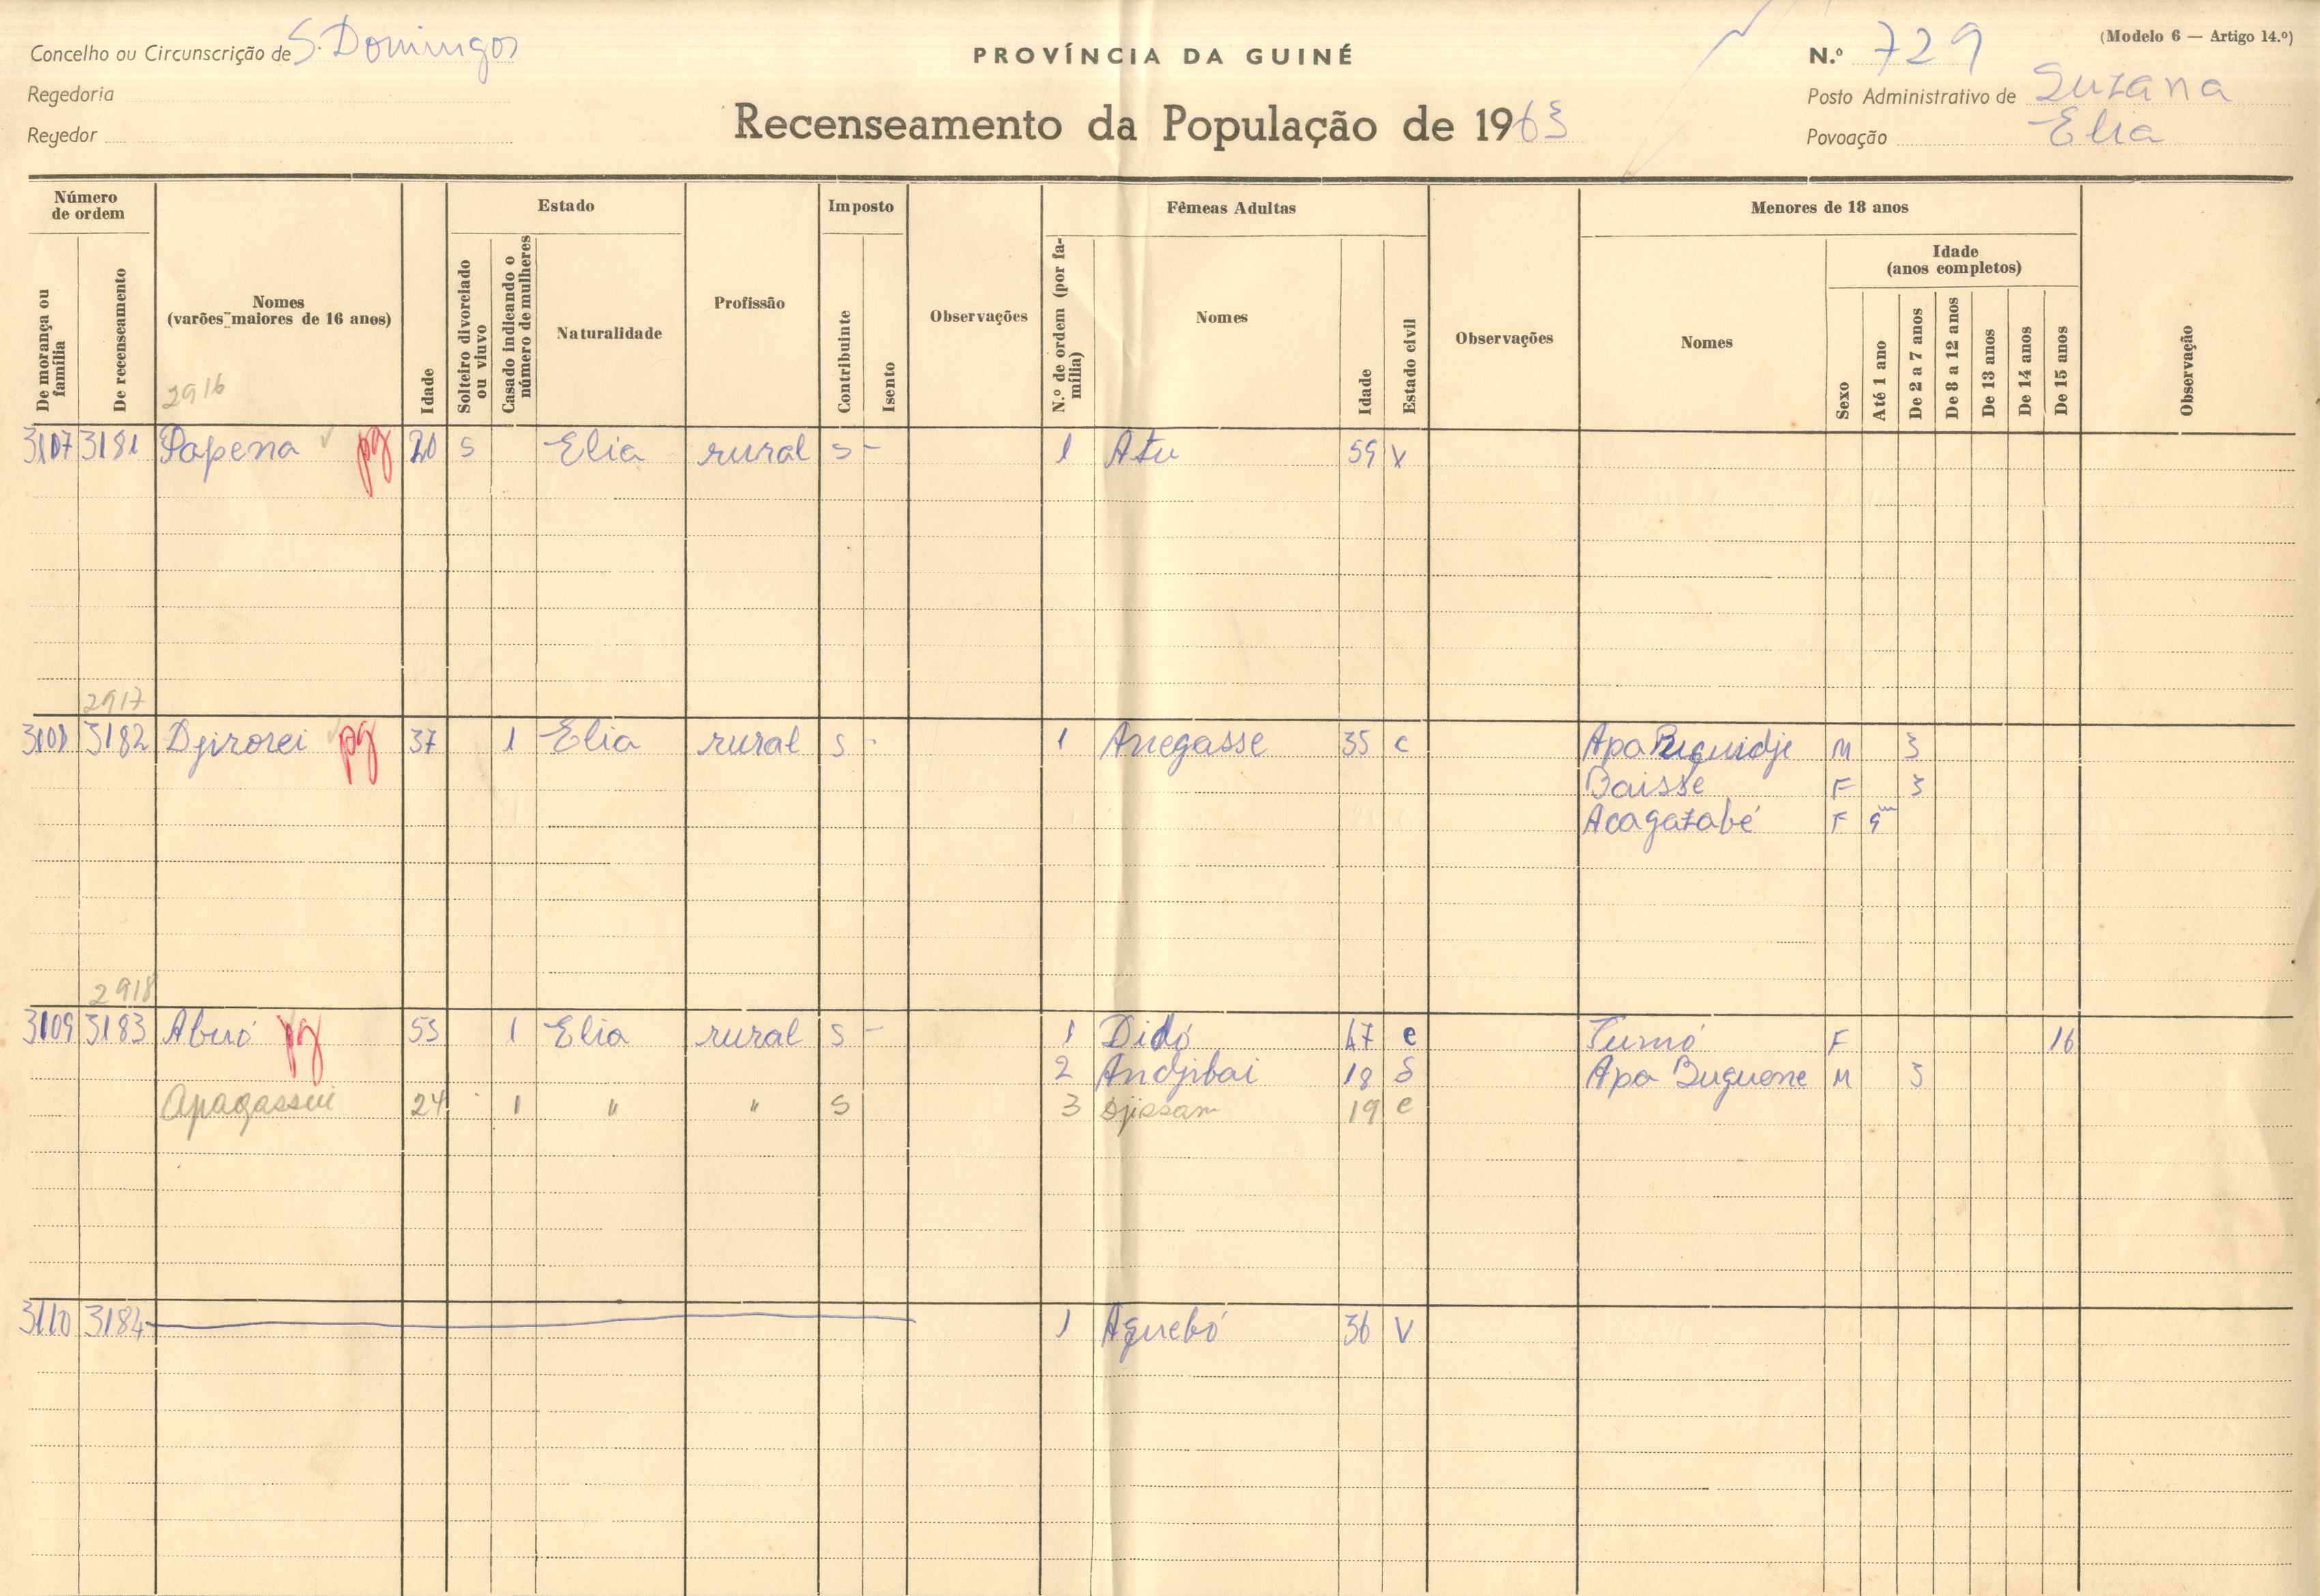 Concelho ou Circunscrição de S. Domingos
Regedoria
Regedor
PROVÍNCIA DA GUINÉ
Recenseamento da População de 1963
(Modelo 6 — Artigo 14.º)
N.º 729
Posto Administrativo de Suzana
Povoação Elia
Número de ordem
De morança ou família
De recenseamento
Nomes (varões maiores de 16 anos)
2916
Idade
Estado
Solteiro divorciado ou viuvo
Casado indicando o número de mulheres
Naturalidade
Profissão
Imposto
Contribuinte
Isento
Observações
Fêmeas Adultas
N.º de ordem (por família)
Nomes
Idade
Estado civil
Observações
Menores de 18 anos
Nomes
Sexo
Idade (anos completos)
Até 1 ano
De 2 a 7 anos
De 8 a 12 anos
De 13 anos
De 14 anos
De 15 anos
Observação
3107 3181 Papena pg 20 S Elia rural S - 1 Atu 59 V
2917
3108 3182 Djirorei pg 37 1 Elia rural S - 1 Anegasse 35 c Apa Buguidje M 3
Baisse F 3
Acagazabé F 9m
2918
3109 3183 Abuó pg 53 1 Elia rural S - 1 Didó 47 c Jumó F 16
2 Andjibai 18 S Apa Buguene M 3
Apagassui 24 1 " " S 3 Djissam 19 c
3110 3184 1 Aguebó 36 V